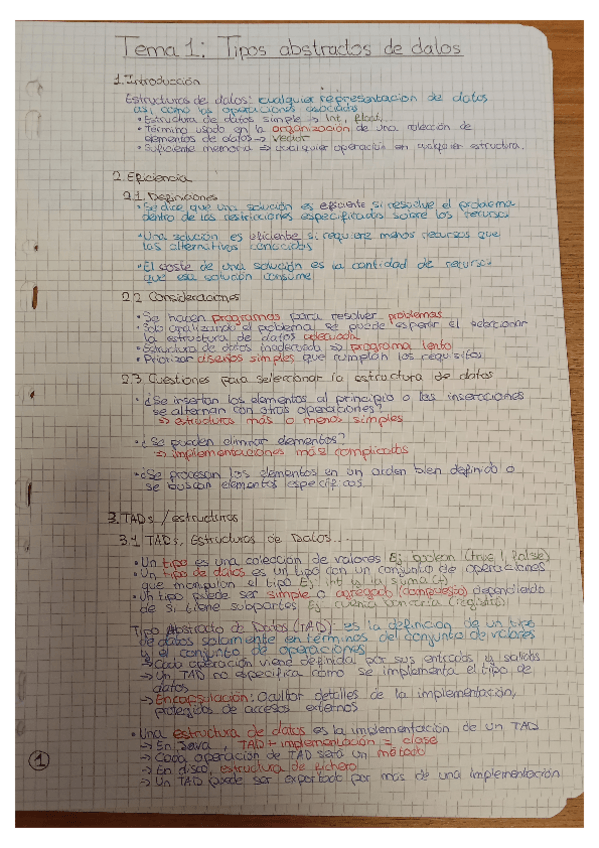 Tema 1: Tipos abstractos de datos
1. Introducción
Estructuras de datos: cualquier representación de datos
así como las operaciones asociadas
• Estructura de datos simple → Int, float,...
• Término usado en la organización de una colección de
elementos de datos → vector
• Suficiente memoria ⇒ cualquier operación en cualquier estructura.
2. Eficiencia
2.1. Definiciones
• Se dice que una solución es eficiente si resuelve el problema
dentro de las restricciones especificadas sobre los recursos
• Una solución es eficiente si requiere menos recursos que
las alternativas conocidas
• El coste de una solución es la cantidad de recursos
que esa solución consume
2.2 Consideraciones
• Se hacen programas para resolver problemas
• Solo analizando el problema se puede esperar el seleccionar
la estructura de datos adecuada
• Estructura de datos inadecuada ⇒ programa lento
• Priorizar diseños simples que cumplan los requisitos
2.3 Cuestiones para seleccionar la estructura de datos
• ¿Se insertan los elementos al principio o las inserciones
se alternan con otras operaciones?
⇒ estructuras más o menos simples
• ¿Se pueden eliminar elementos?
⇒ implementaciones más complicadas
• ¿Se procesan los elementos en un orden bien definido o
se buscan elementos específicos
3. TADs / estructuras
3.1 TADs, Estructuras de Datos...
• Un tipo es una colección de valores Ej boolean (true, false)
• Un tipo de datos es un tipo con un conjunto de operaciones
que manipulan el tipo Ej int y la suma (+)
• Un tipo puede ser simple o agregado (compuesto) dependiendo
de si tiene subpartes Ej cuenta bancaria (registro)
Tipo Abstracto de Datos (TAD): es la definición de un tipo
de datos solamente en términos del conjunto de valores
y el conjunto de operaciones
→ Cada operación viene definida por sus entradas y salidas
→ Un TAD no especifica cómo se implementa el tipo de
datos
→ Encapsulación: Ocultar detalles de la implementación,
protegidos de accesos externos
• Una estructura de datos es la implementación de un TAD
→ En Java, TAD + implementación = clase
→ Cada operación de TAD será un método
→ En disco, estructura de fichero
→ Un TAD puede ser exportado por más de una implementación
1